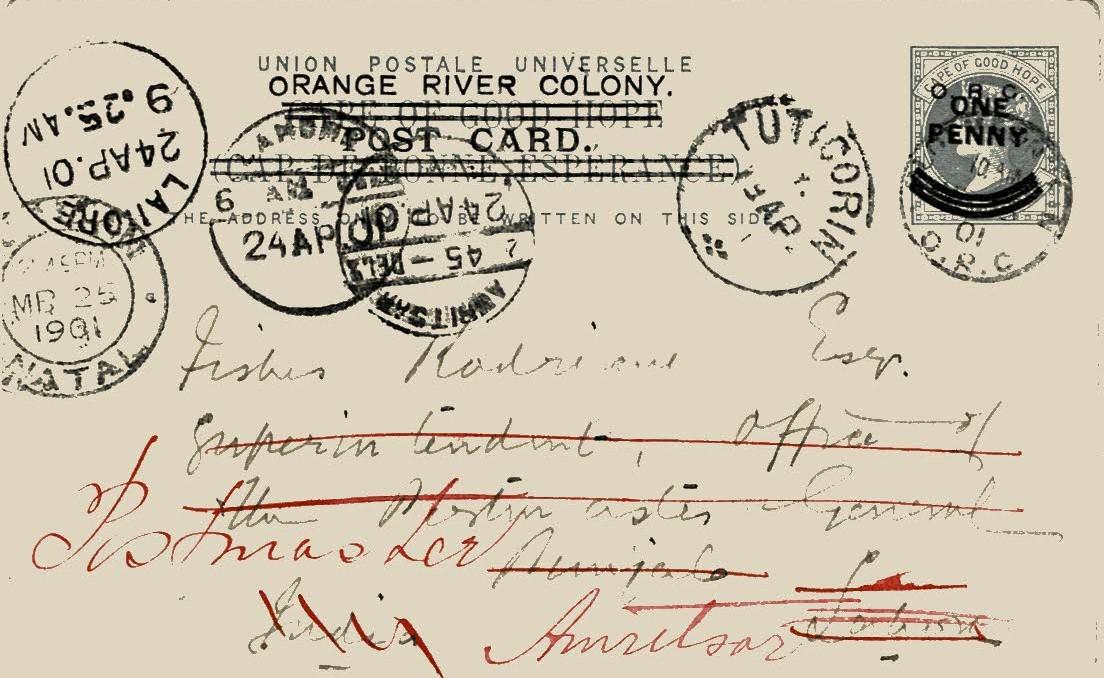 UNION POSTALE UNIVERSELLE
ORANGE RIVER COLONY.
CAPE OF GOOD HOPE
POST CARD.
(CAP DE BONNE ESPERANCE)
THE ADDRESS ONLY TO BE WRITTEN ON THIS SIDE
CAPE OF GOOD HOPE
O.R.C.
ONE
PENNY.
O.R.C
01
TUTICORIN
AP.
LAHORE
24AP.01
9.25.AM
6 AM
24AP.01
24AP.01
45 - DEL
AMRITSAR
45PM
25
1901
NATAL
Esqr.
Superintendent, Office of
the Postmaster General
Punjab
Lahore
India
Postmaster
Amritsar